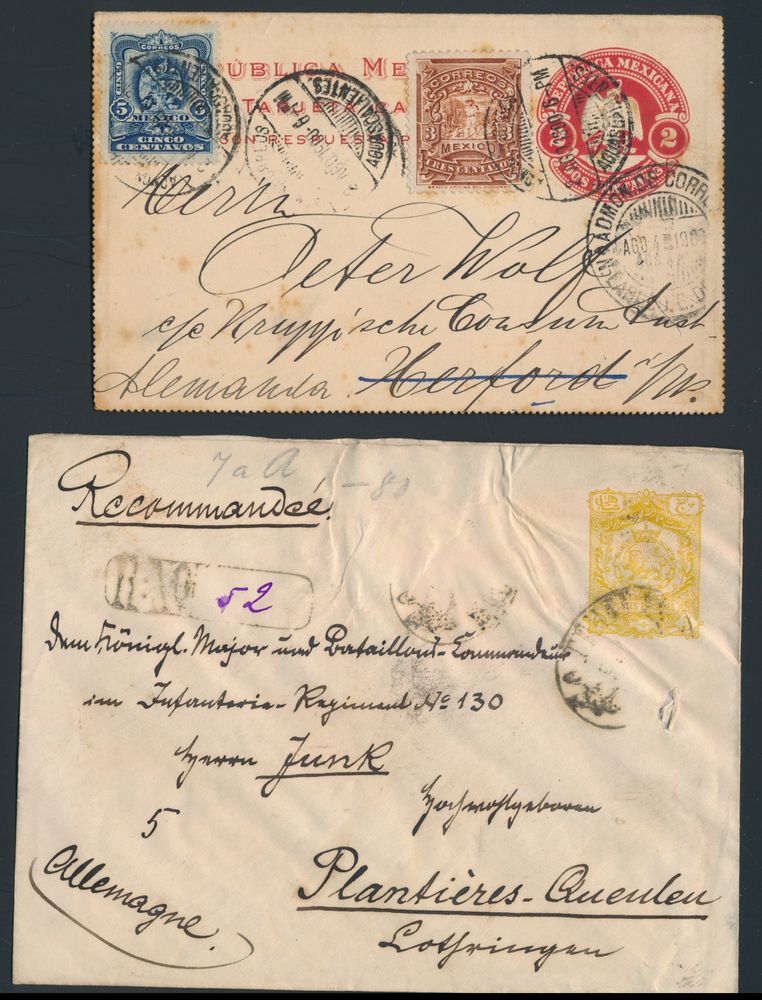 CORREOS
CINCO
CINCO
5 5
MEXICO
CINCO
CENTAVOS
REPÚBLICA MEXICANA
TARJETA CARTA
CON RESPUESTA
CORREOS
3 3
MEXICO
TRES CENTAVOS
REPUBLICA MEXICANA
2 2
AGUASCALIENTES
ADMON. DE CORREOS
AGO 4
Herrn
Peter Wolf
c/o Krupp'sche Consum Anst
Herford i/W.
Alemania
7 a A -80
Recommandée.
R.No 52
Dem Königl. Major und Bataillons-Commandeur
im Infanterie-Regiment No 130
Herrn Junk
Hochwohlgeboren
5
Allemagne.
Plantières-Queulen
Lothringen